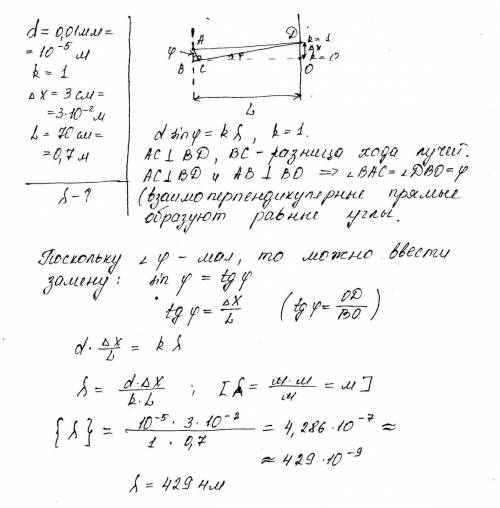 d = 0,01мм =
= 10⁻⁵ м
k = 1
Δx = 3 см =
= 3·10⁻² м
L = 70 см =
= 0,7 м
λ - ?
A
D
k = 1
Δx
φ
φ
B
C
O
k = 0
L
d sinφ = k λ , k = 1.
AC⊥BD, BC - разница хода лучей.
AC⊥BD и AB⊥BO => ∠BAC = ∠DBO = φ
(взаимоперпендикулярные прямые
образуют равные углы.
Поскольку ∠φ - мал, то можно ввести
замену: sin φ = tg φ
tg φ = Δx/L (tg φ = OD/BO)
d · Δx/L = k λ
λ = d·Δx/k·L ; [λ = м·м/м = м]
{λ} = 10⁻⁵ · 3·10⁻²/1 · 0,7 = 4,286·10⁻⁷ ≈
≈ 429·10⁻⁹
λ = 429 нм